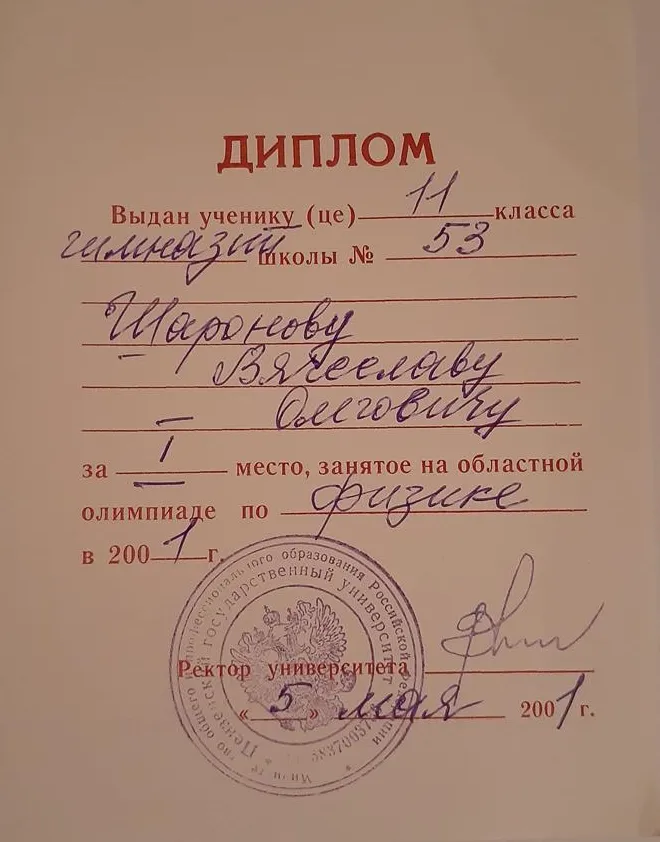 ДИПЛОМ
Выдан ученику (це) 11 класса
гимназии школы № 53
Шаронову
Вячеславу
Олеговичу
за I место, занятое на областной
олимпиаде по физике
в 2001 г.
Ректор университета
« 5 » мая 2001 г.
общего и профессионального образования Российской
Пензенский государственный университет